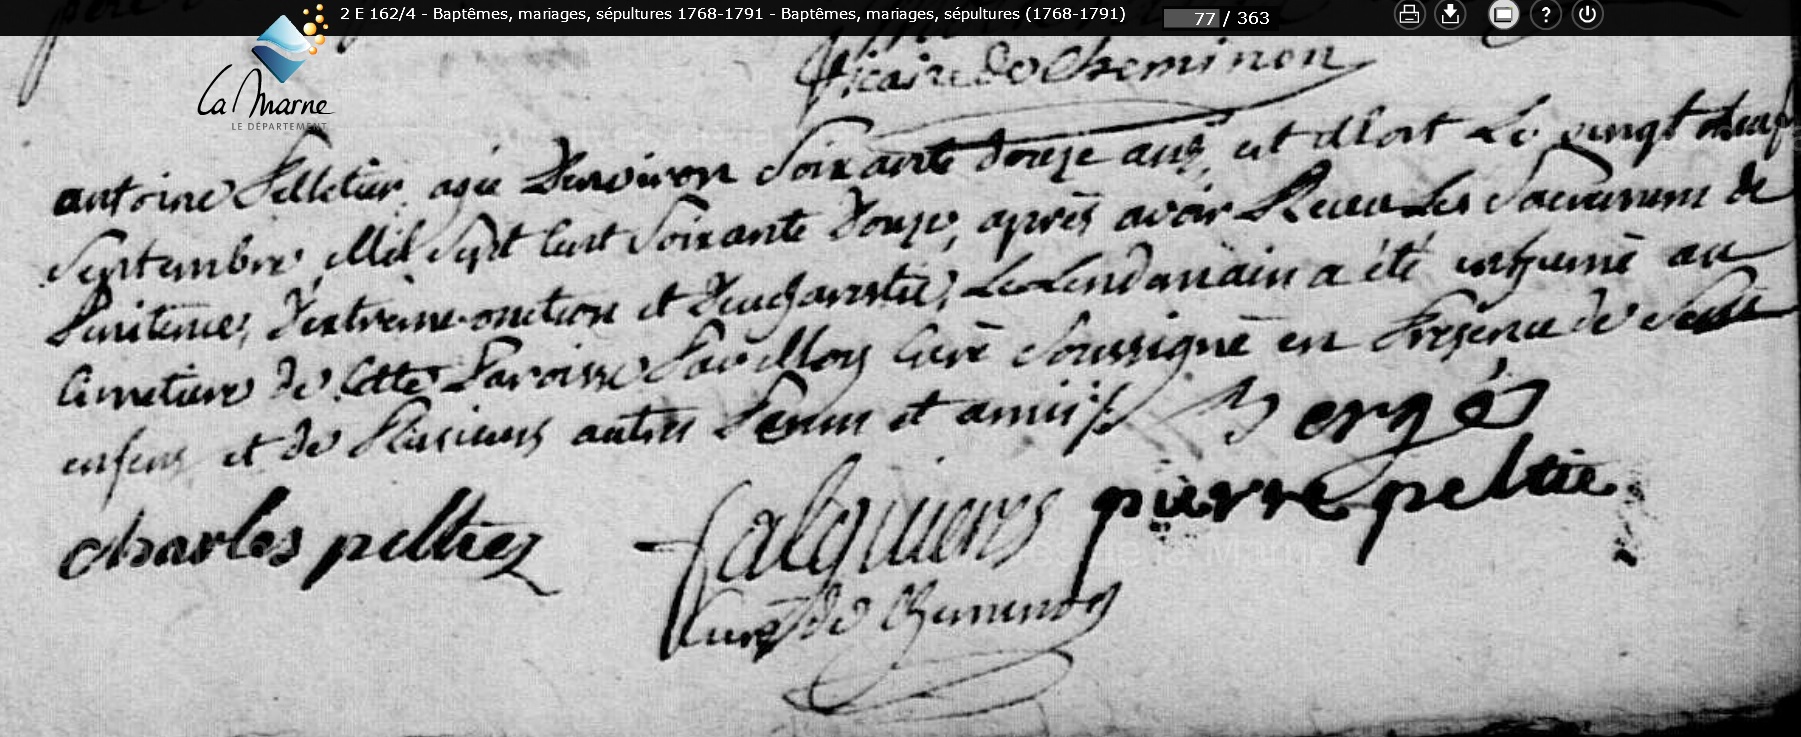 2 E 162/4 - Baptêmes, mariages, sépultures 1768-1791 - Baptêmes, mariages, sépultures (1768-1791) 77 / 363
La Marne
LE DÉPARTEMENT
Vicaire de Cheminon
antoine Pelletier agé D'environ Soixante douze ans, est Mort Le vingt neuf
Septembre Mil Sept Cent Soixante Douze, après avoir Recu Les Sacremens de
Penitence, D'extreme onction et D'eucharistie; Le Lendemain a été inhumé au
Cimetiere de Cette Paroisse Par Moy Curé Soussigné en Présence de Ses
enfens et de Plusieurs autres Parens et amis
Bergés
charles peltiez
falguieres
pierre peltie
Curé de Cheminon